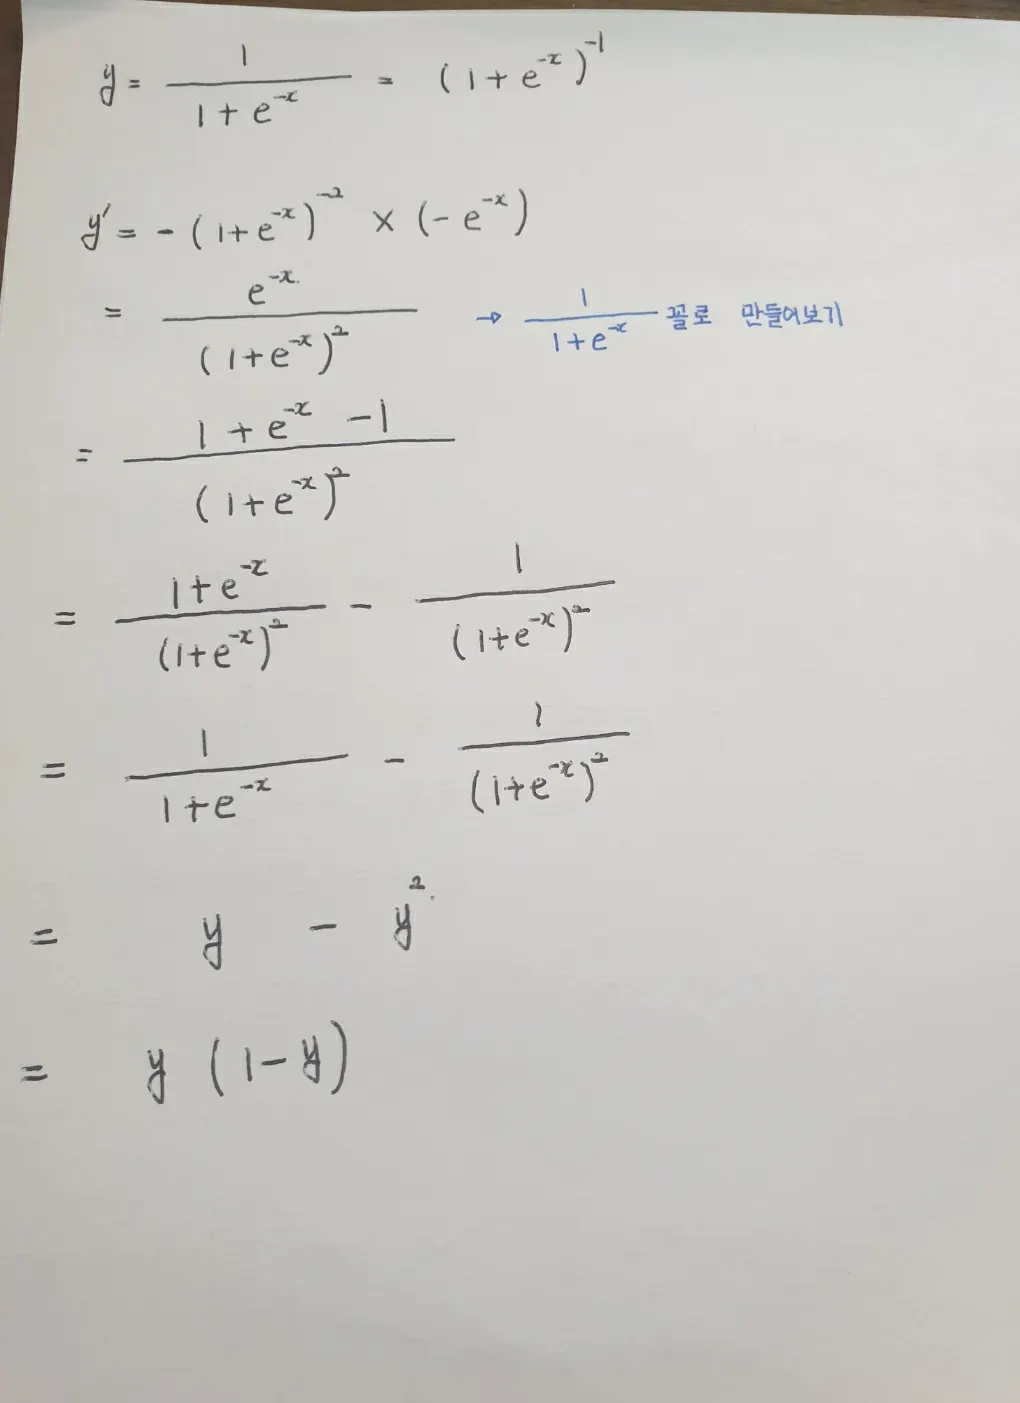 y = 1/(1+e^{-x}) = (1+e^{-x})^{-1}
y' = -(1+e^{-x})^{-2} × (-e^{-x})
= e^{-x}/(1+e^{-x})^2 → 1/(1+e^{-x}) 꼴로 만들어보기
= (1+e^{-x}-1)/(1+e^{-x})^2
= (1+e^{-x})/(1+e^{-x})^2 - 1/(1+e^{-x})^2
= 1/(1+e^{-x}) - 1/(1+e^{-x})^2
= y - y^2
= y(1-y)